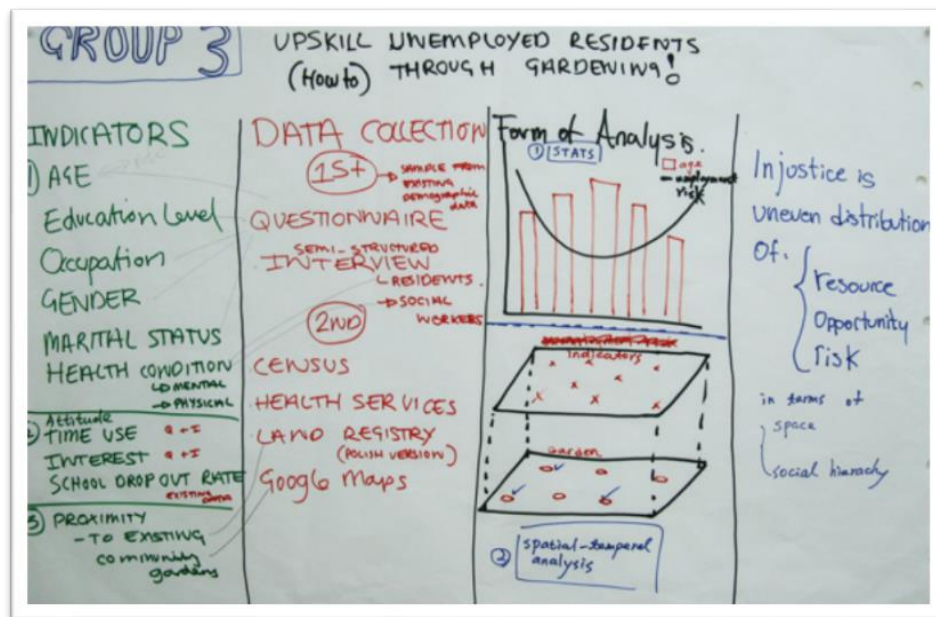 GROUP 3
UPSKILL UNEMPLOYED RESIDENTS
(How to) THROUGH GARDENING!
INDICATORS
1) AGE
Education Level
Occupation
GENDER
MARITAL STATUS
HEALTH CONDITION
↳ MENTAL
→ PHYSICAL
Attitude
2 TIME USE Q + I
INTEREST Q + I
SCHOOL DROP OUT RATE
EXISTING DATA
3 PROXIMITY
- TO EXISTING
community
gardens
DATA COLLECTION
1ST → SAMPLE FROM
EXISTING
Demographic
data
QUESTIONNAIRE
SEMI-STRUCTURED
INTERVIEW
↳ RESIDENTS.
→ SOCIAL
WORKERS
2ND
CENSUS
HEALTH SERVICES
LAND REGISTRY
(POLISH VERSION)
Google Maps
Form of Analysis.
1 STATS
age
risk
Indicators
Garden
2 spatial-temporal
analysis
Injustice is
uneven distribution
Of.
resource
Opportunity
risk
in terms of
space
social hierarchy